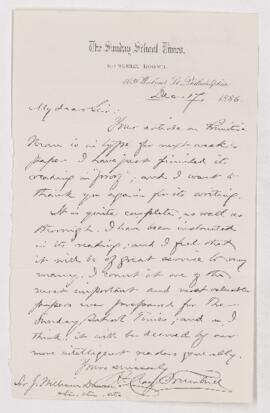 The Sunday School Times.
Philadelphia
Dec. 17, 1886.
My dear Sir:
Your article on Primitive
Man is in type for next week's
paper. I have just finished its
reading in proof; and I want to
thank you again for its writing.
It is quite complete, as well as
thorough. I have been instructed
in its reading; and I feel that
it will be of great service to very
many. I count it one of the
most important and most valuable
papers ever prepared for The
Sunday School Times; and, as I
think, it will be deemed by our
more intelligent readers generally.
Yours sincerely
H. Clay Trumbull
Sir J. William Dawson
etc. etc. etc.